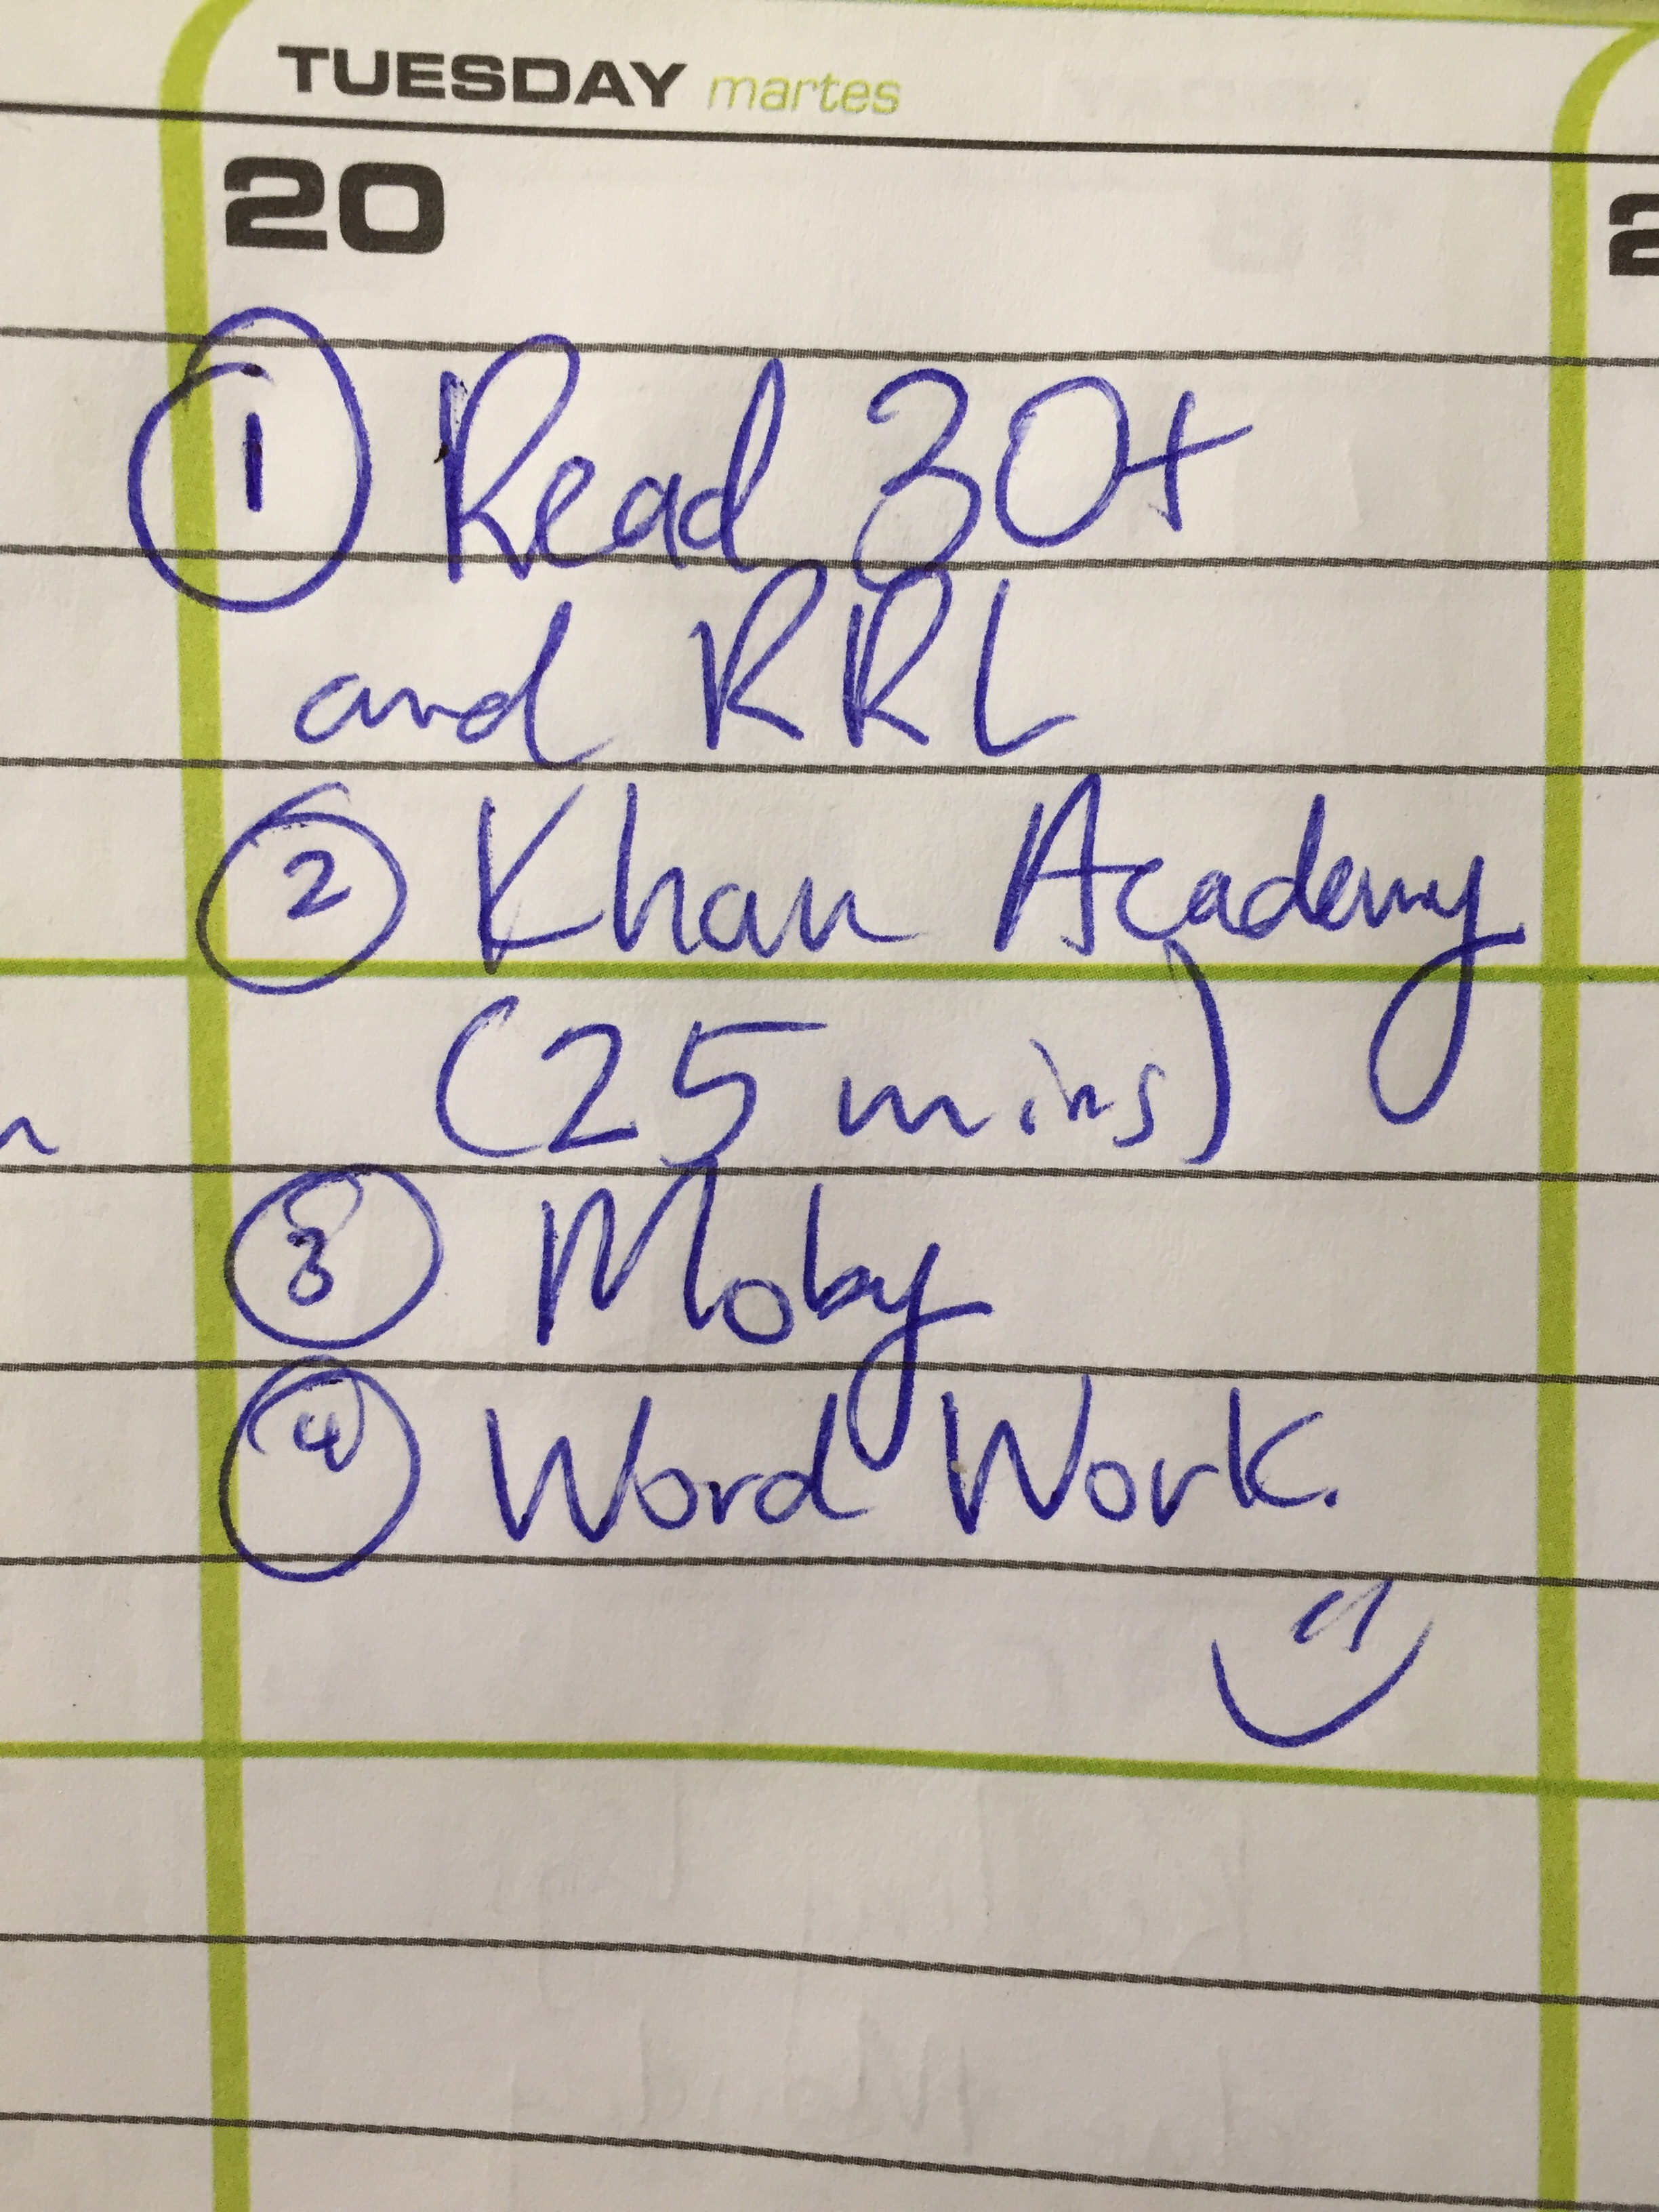 TUESDAY martes
20
1 Read 30+
and RRL
2 Khan Academy
(25 mins)
3 Moby
4 Word Work.